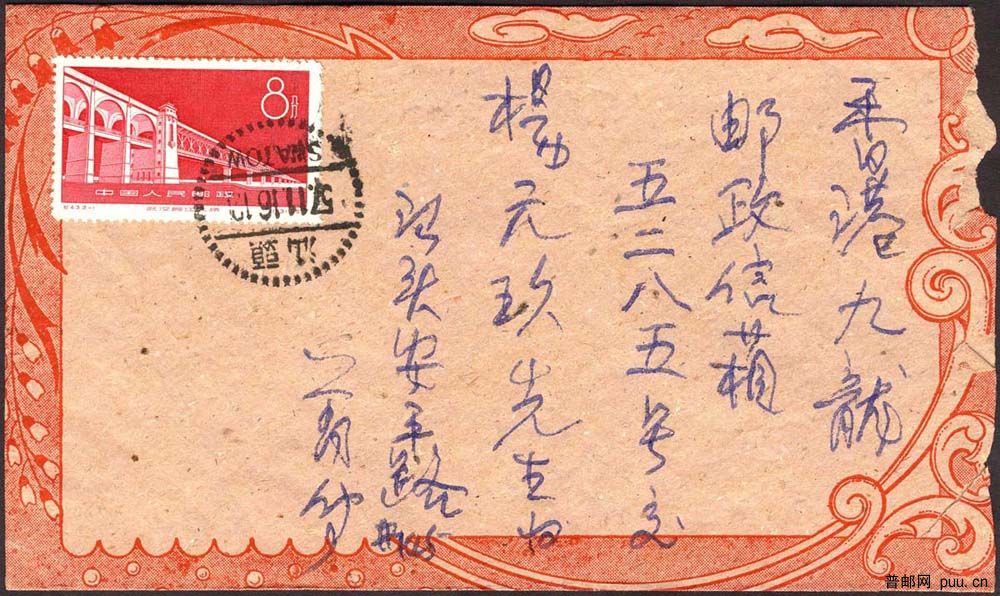 香港九龍
邮政信箱
五二八五号交
楊元玖先生收
汕头安平路
145
8分
中国人民邮政
SWATOW
57.11.16.1
汕頭
普邮网 puu.cn